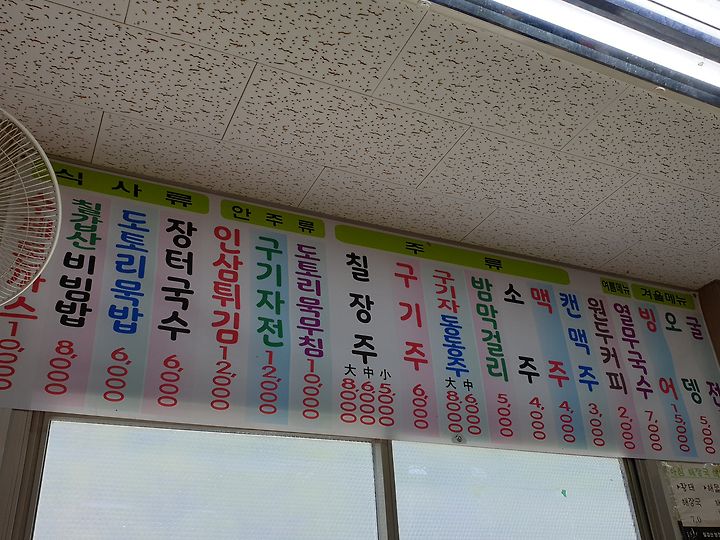 식사류
10,000
칠갑산비빔밥
8,000
도토리묵밥
6,000
장터국수
6,000
안주류
인삼튀김
12,000
구기자전
12,000
도토리묵무침
10,000
주류
칠장주
大 中 小
8,000 6,000 5,000
구기주
6,000
구기자동동주
大 中
8,000 6,000
밤막걸리
5,000
소주
4,000
맥주
4,000
캔맥주
3,000
원두커피
2,000
여름메뉴
열무국수
7,000
겨울메뉴
빙어
15,000
오뎅
5,000
굴전
해장국